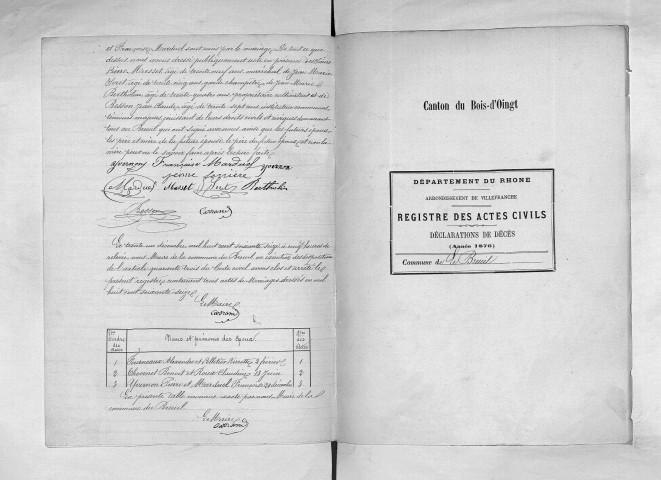 et Françoise Marduel sont unis par le mariage. De tout ce que
dessus nous avons dressé publiquement acte en présence des sieurs
Pierre Mosset, âgé de trente neuf ans, maréchal, de Jean Marie
âgé de trente cinq ans garde champêtre, de Jean Marie
Berthelon, âgé de trente quatre ans, propriétaire cultivateur et de
Besson Jean Claude, âgé de trente sept ans instituteur communal
témoins majeurs jouissant de leurs droits civils et
tous au Breuil qui ont signé avec nous ainsi que les futurs époux
les père et mère de la future épouse, le père du futur époux, et non la
mère pour ne le savoir faire après lecture faite.
Françoise Marduel
pierre
Mosset
Besson
Le trente un décembre mil huit cent soixante seize à cinq heures de
relevée, nous Maire de la commune du Breuil, en exécution des dispositions
de l'article quarante trois du Code civil avons clos et arrêté le
présent registre contenant trois actes de Mariages dressés en mil
huit cent soixante seize.
Le Maire
Noms et prénoms des Epoux
1 Alexandre et Pelletier Pierrette 3 février 1
2 Benoit et Roux Claudine 13 Juin 2
3 Pierre et Marduel Françoise 30 décembre 3
La présente table annuaire exacte par nous Maire de la
commune du Breuil
Le Maire
Canton du Bois-d'Oingt
DÉPARTEMENT DU RHONE
ARRONDISSEMENT DE VILLEFRANCHE
REGISTRE DES ACTES CIVILS
DÉCLARATIONS DE DÉCÈS
(Année 1876)
Commune de Le Breuil